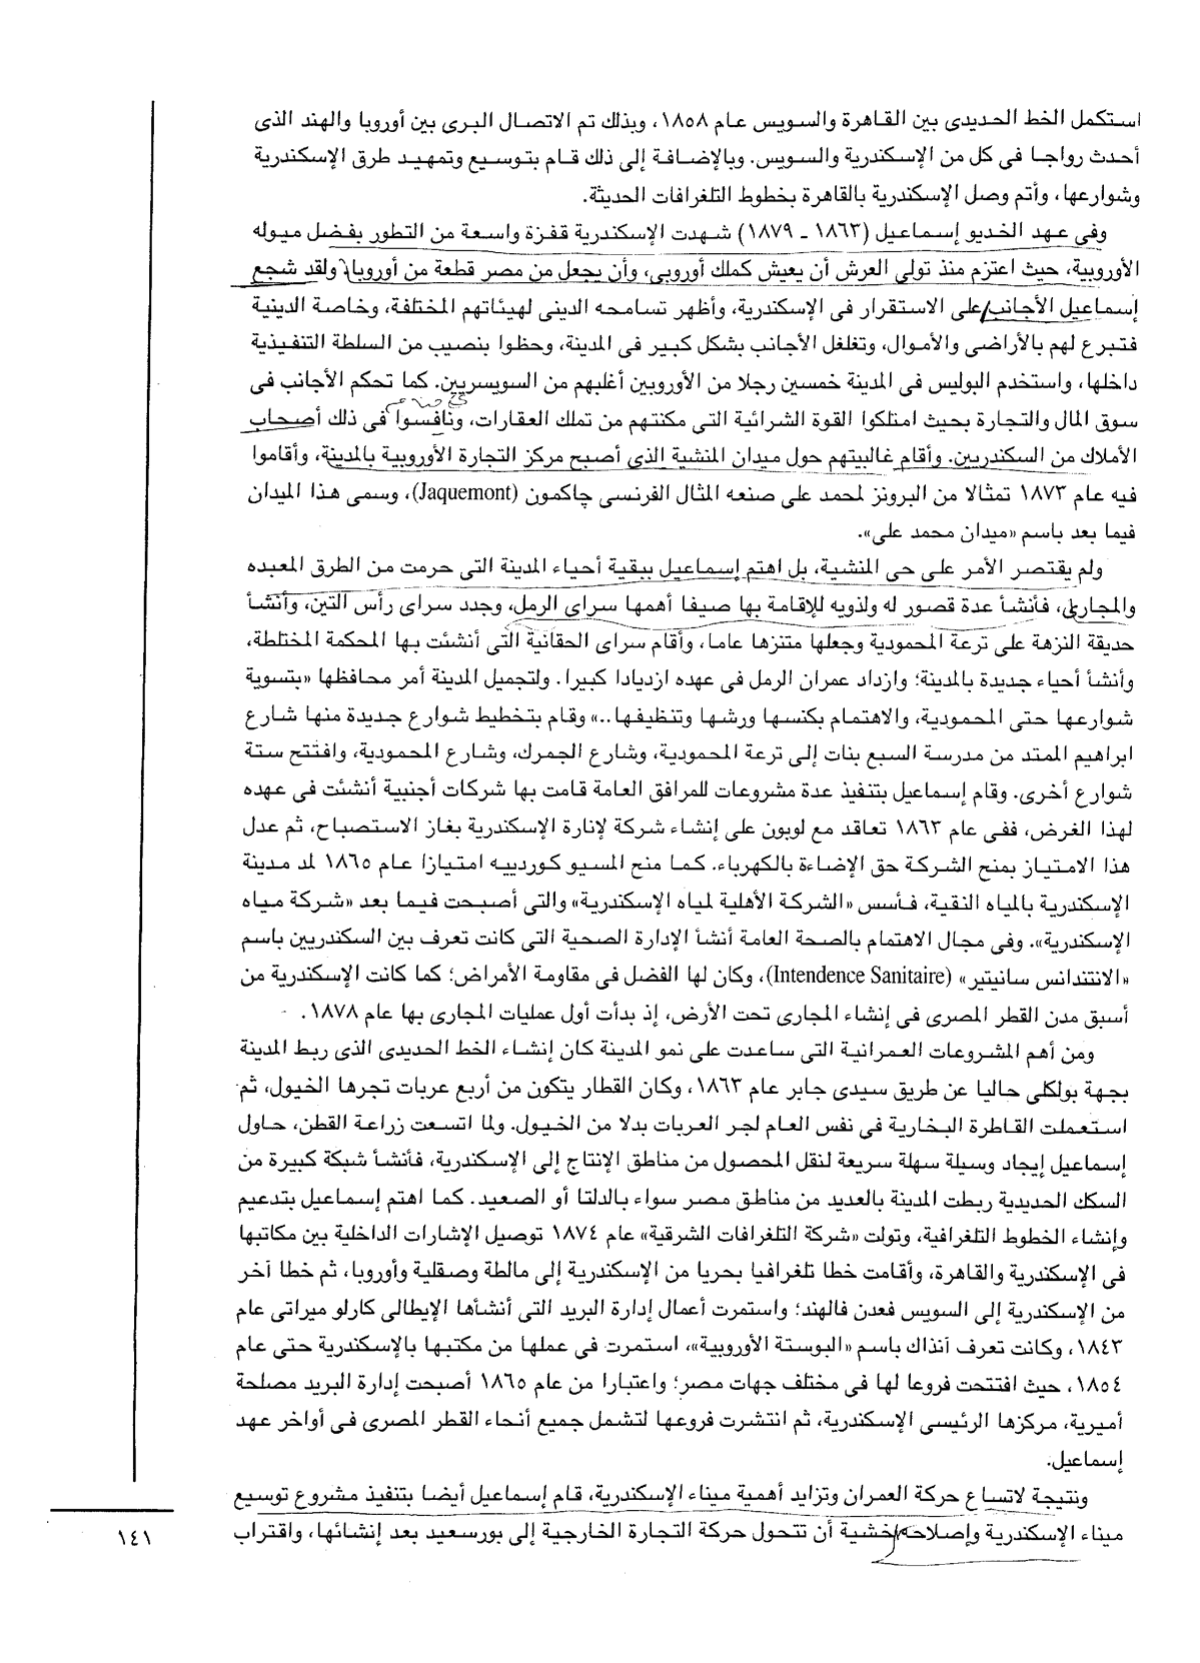 استكمل الخط الحديدى بين القاهرة والسويس عام ١٨٥٨، وبذلك تم الاتصال البرى بين أوروبا والهند الذى
أحدث رواجا فى كل من الإسكندرية والسويس. وبالإضافة إلى ذلك قام بتوسيع وتمهيد طرق الإسكندرية
وشوارعها، وأتم وصل الإسكندرية بالقاهرة بخطوط التلغرافات الحديثة.
وفى عهد الخديو إسماعيل (١٨٦٣ - ١٨٧٩) شهدت الإسكندرية قفزة واسعة من التطور بفضل ميوله
الأوروبية، حيث اعتزم منذ تولى العرش أن يعيش كملك أوروبى، وأن يجعل من مصر قطعة من أوروبا، ولقد شجع
إسماعيل الأجانب على الاستقرار فى الإسكندرية، وأظهر تسامحه الدينى لهيئاتهم المختلفة، وخاصة الدينية
فتبرع لهم بالأراضى والأموال، وتغلغل الأجانب بشكل كبير فى المدينة، وحظوا بنصيب من السلطة التنفيذية
داخلها، واستخدم البوليس فى المدينة خمسين رجلا من الأوروبين أغلبهم من السويسريين. كما تحكم الأجانب فى
سوق المال والتجارة بحيث امتلكوا القوة الشرائية التى مكنتهم من تملك العقارات، ونافسوا فى ذلك أصحاب
الأملاك من السكندريين. وأقام غالبيتهم حول ميدان المنشية الذى أصبح مركز التجارة الأوروبية بالمدينة، وأقاموا
فيه عام ١٨٧٣ تمثالا من البرونز لمحمد على صنعه المثال الفرنسى چاكمون (Jaquemont)، وسمى هذا الميدان
فيما بعد باسم «ميدان محمد على».
ولم يقتصر الأمر على حى المنشية، بل اهتم إسماعيل ببقية أحياء المدينة التى حرمت من الطرق المعبده
والمجارى، فأنشأ عدة قصور له ولذويه للإقامة بها صيفا أهمها سراى الرمل، وجدد سراى رأس التين، وأنشأ
حديقة النزهة على ترعة المحمودية وجعلها متنزها عاما، وأقام سراى الحقانية التى أنشئت بها المحكمة المختلطة،
وأنشأ أحياء جديدة بالمدينة؛ وازداد عمران الرمل فى عهده ازديادا كبيرا. ولتجميل المدينة أمر محافظها «بتسوية
شوارعها حتى المحمودية، والاهتمام بكنسها ورشها وتنظيفها..» وقام بتخطيط شوارع جديدة منها شارع
ابراهيم الممتد من مدرسة السبع بنات إلى ترعة المحمودية، وشارع الجمرك، وشارع المحمودية، وافتتح ستة
شوارع أخرى. وقام إسماعيل بتنفيذ عدة مشروعات للمرافق العامة قامت بها شركات أجنبية أنشئت فى عهده
لهذا الغرض، ففى عام ١٨٦٣ تعاقد مع لوبون على إنشاء شركة لإنارة الإسكندرية بغاز الاستصباح، ثم عدل
هذا الامتياز بمنح الشركة حق الإضاءة بالكهرباء. كما منح المسيو كوردييه امتيازا عام ١٨٦٥ لمد مدينة
الإسكندرية بالمياه النقية، فأسس «الشركة الأهلية لمياه الإسكندرية» والتى أصبحت فيما بعد «شركة مياه
الإسكندرية». وفى مجال الاهتمام بالصحة العامة أنشأ الإدارة الصحية التى كانت تعرف بين السكندريين باسم
«الانتندانس سانيتير» (Intendence Sanitaire)، وكان لها الفضل فى مقاومة الأمراض؛ كما كانت الإسكندرية من
أسبق مدن القطر المصرى فى إنشاء المجارى تحت الأرض، إذ بدأت أول عمليات المجارى بها عام ١٨٧٨.
ومن أهم المشروعات العمرانية التى ساعدت على نمو المدينة كان إنشاء الخط الحديدى الذى ربط المدينة
بجهة بولكلى حاليا عن طريق سيدى جابر عام ١٨٦٣، وكان القطار يتكون من أربع عربات تجرها الخيول، ثم
استعملت القاطرة البخارية فى نفس العام لجر العربات بدلا من الخيول. ولما اتسعت زراعة القطن، حاول
إسماعيل إيجاد وسيلة سهلة سريعة لنقل المحصول من مناطق الإنتاج إلى الإسكندرية، فأنشأ شبكة كبيرة من
السكك الحديدية ربطت المدينة بالعديد من مناطق مصر سواء بالدلتا أو الصعيد. كما اهتم إسماعيل بتدعيم
وإنشاء الخطوط التلغرافية، وتولت «شركة التلغرافات الشرقية» عام ١٨٧٤ توصيل الإشارات الداخلية بين مكاتبها
فى الإسكندرية والقاهرة، وأقامت خطا تلغرافيا بحريا من الإسكندرية إلى مالطة وصقلية وأوروبا، ثم خطا آخر
من الإسكندرية إلى السويس فعدن فالهند؛ واستمرت أعمال إدارة البريد التى أنشأها الإيطالى كارلو ميراتى عام
١٨٤٣، وكانت تعرف آنذاك باسم «البوستة الأوروبية»، استمرت فى عملها من مكتبها بالإسكندرية حتى عام
١٨٥٤، حيث افتتحت فروعا لها فى مختلف جهات مصر؛ واعتبارا من عام ١٨٦٥ أصبحت إدارة البريد مصلحة
أميرية، مركزها الرئيسى الإسكندرية، ثم انتشرت فروعها لتشمل جميع أنحاء القطر المصرى فى أواخر عهد
إسماعيل.
ونتيجة لاتساع حركة العمران وتزايد أهمية ميناء الإسكندرية، قام إسماعيل أيضا بتنفيذ مشروع توسيع
ميناء الإسكندرية وإصلاحه خشية أن تتحول حركة التجارة الخارجية إلى بورسعيد بعد إنشائها، واقتراب
١٤١